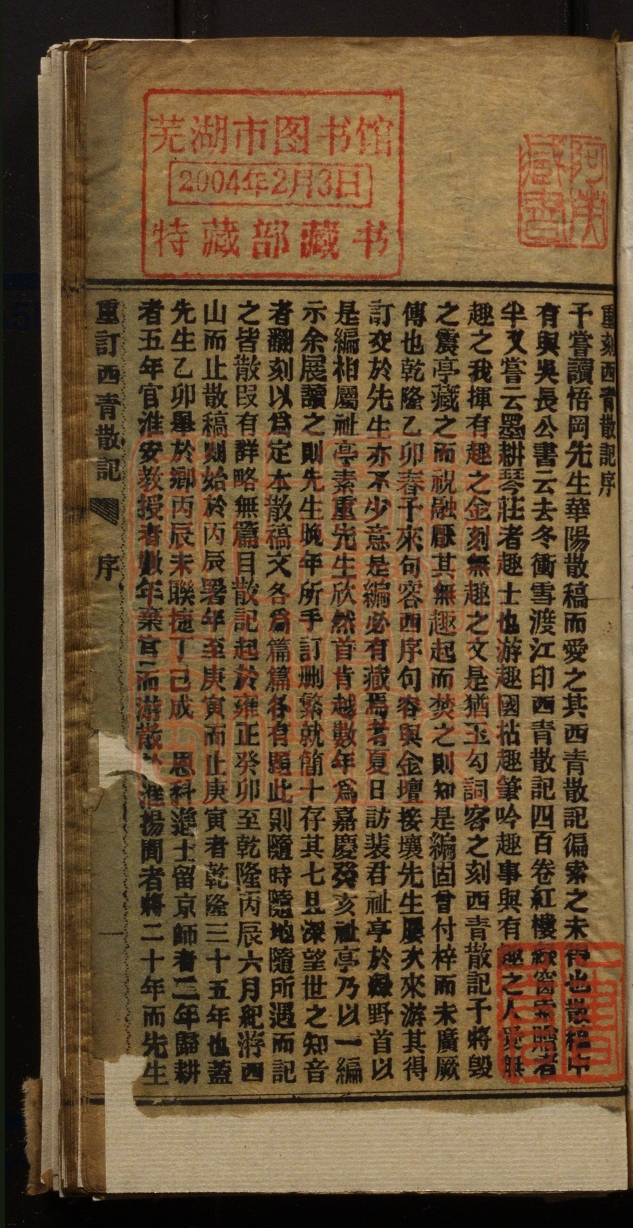 芜湖市图书馆
2004年2月3日
特藏部藏书
重刻西青散記序
予嘗讀悟岡先生華陽散稿而愛之其西青散記徧索之未得也散稿中
有與吳長公書云去冬衝雪渡江印西青散記四百卷紅樓綠窗索贈者
半又嘗云墨耕琴莊者趣士也游趣國拈趣筆吟趣事與有趣之人愛無
趣之我揮有趣之金刻無趣之文是猶玉勾詞客之刻西青散記予將毀
之震亭藏之而祝融厭其無趣起而焚之則知是編固曾付梓而未廣厥
傳也乾隆乙卯春予來句容西序句容與金壇接壤先生屢次來游其得
訂交於先生亦不少意是編必有藏焉者夏日訪裴君祉亭於綠野首以
是編相屬祉亭素重先生欣然首肯越數年為嘉慶癸亥祉亭乃以一編
示余展讀之則先生晚年所手訂删繁就簡十存其七且深望世之知音
者翻刻以為定本散稿文各為篇篇各有題此則隨時隨地隨所遇而記
之皆散段有詳略無篇目散記起於雍正癸卯至乾隆丙辰六月紀游西
山而止散稿則始於丙辰暑年至庚寅而止庚寅者乾隆三十五年也蓋
先生乙卯舉於鄉丙辰未聯捷丁巳成 恩科進士留京師者二年歸耕
者五年官淮安教授者數年棄官而游散於淮揚間者將二十年而先生
重訂西青散記 序